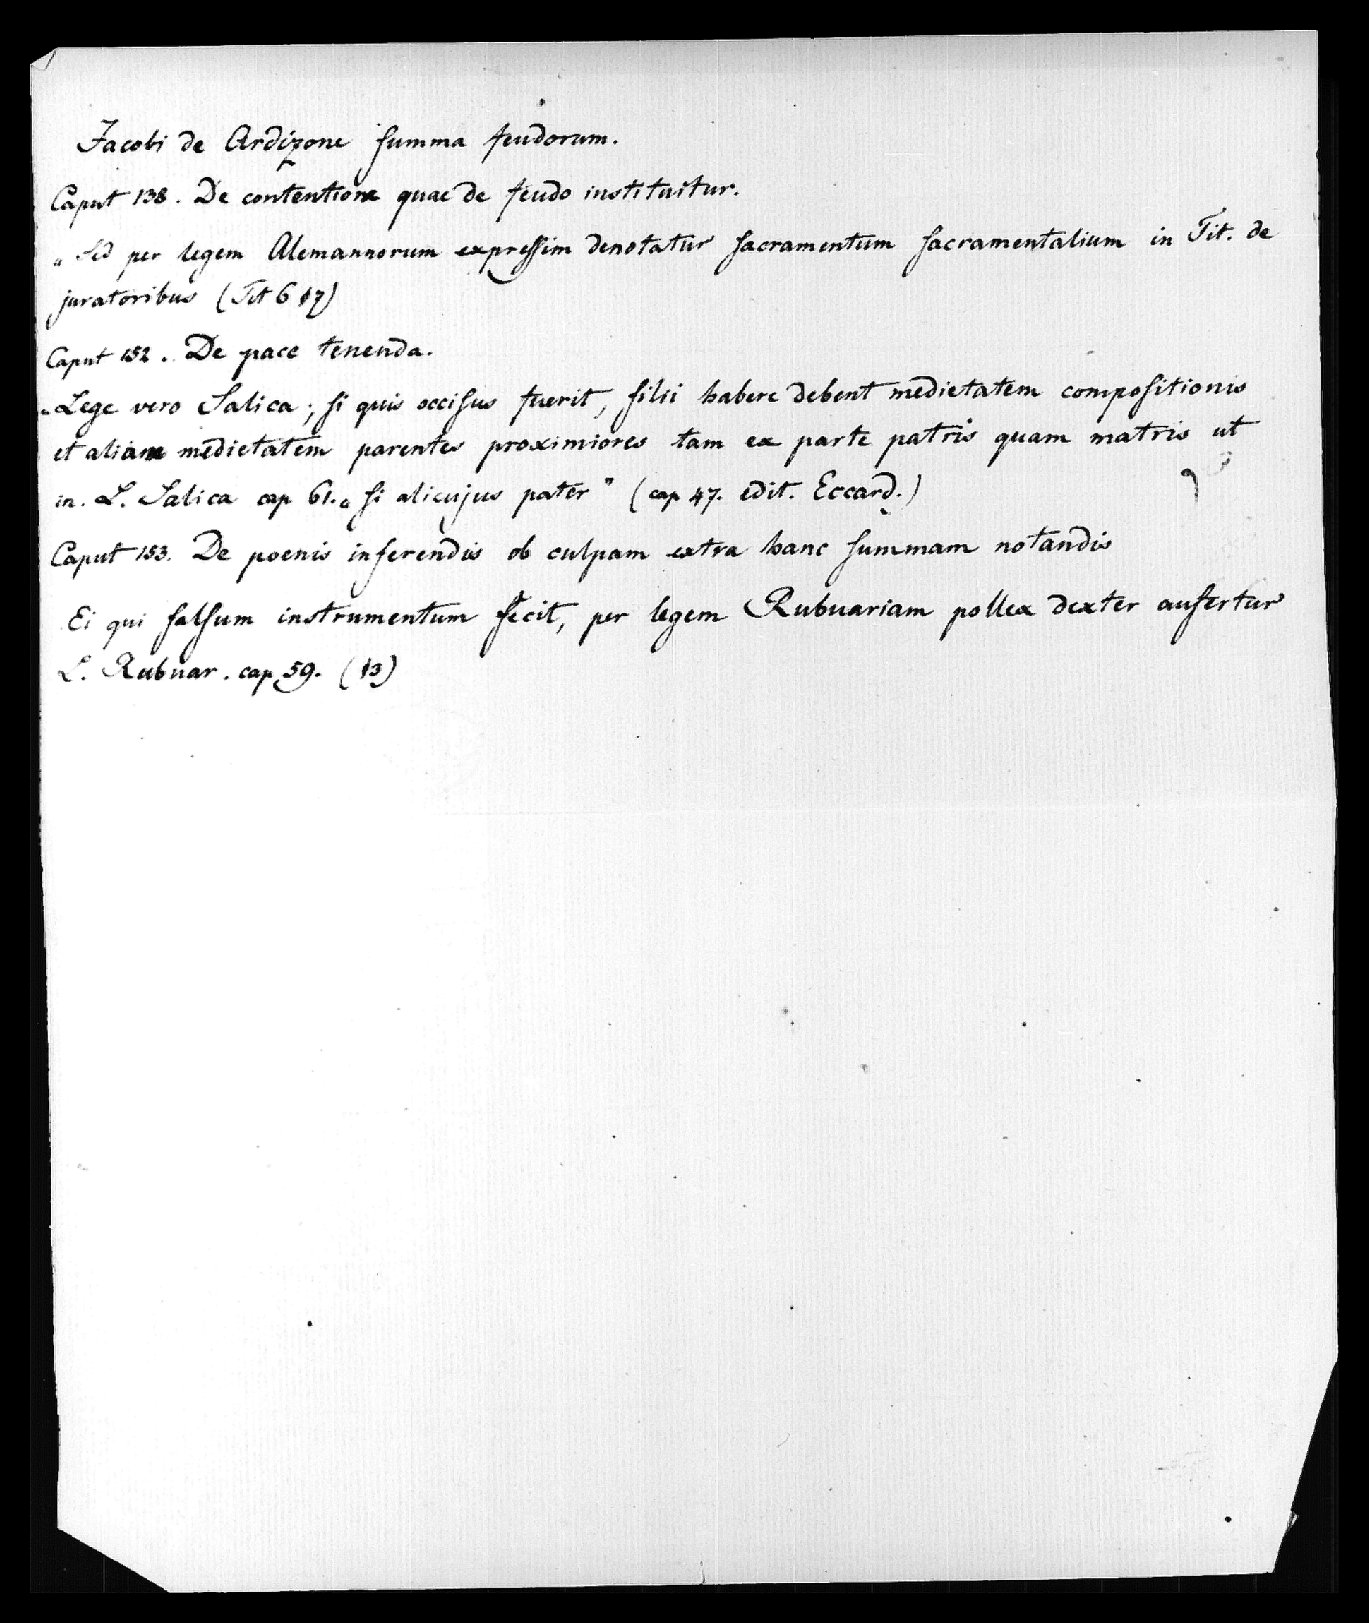 Jacobi de Ardizone summa feudorum.
Caput 138. De contentione quae de feudo instituitur.
„Sed per legem Alemannorum expressim denotatur sacramentum sacramentalium in Tit. de
juratoribus (Tit 6 §7)
Caput 152. De pace tenenda.
„Lege vero Salica; si quis occisus fuerit, filii habere debent medietatem compositionis
et aliam medietatem parentes proximiores tam ex parte patris quam matris ut
in. L. Salica cap 61. „si alicujus pater" (cap 47. edit. Eccard.)
Caput 153. De poenis inferendis ob culpam extra hanc summam notandis
Ei qui falsum instrumentum fecit, per legem Rubuariam pollex dexter aufertur
L. Rubuar. cap. 59. (§3)